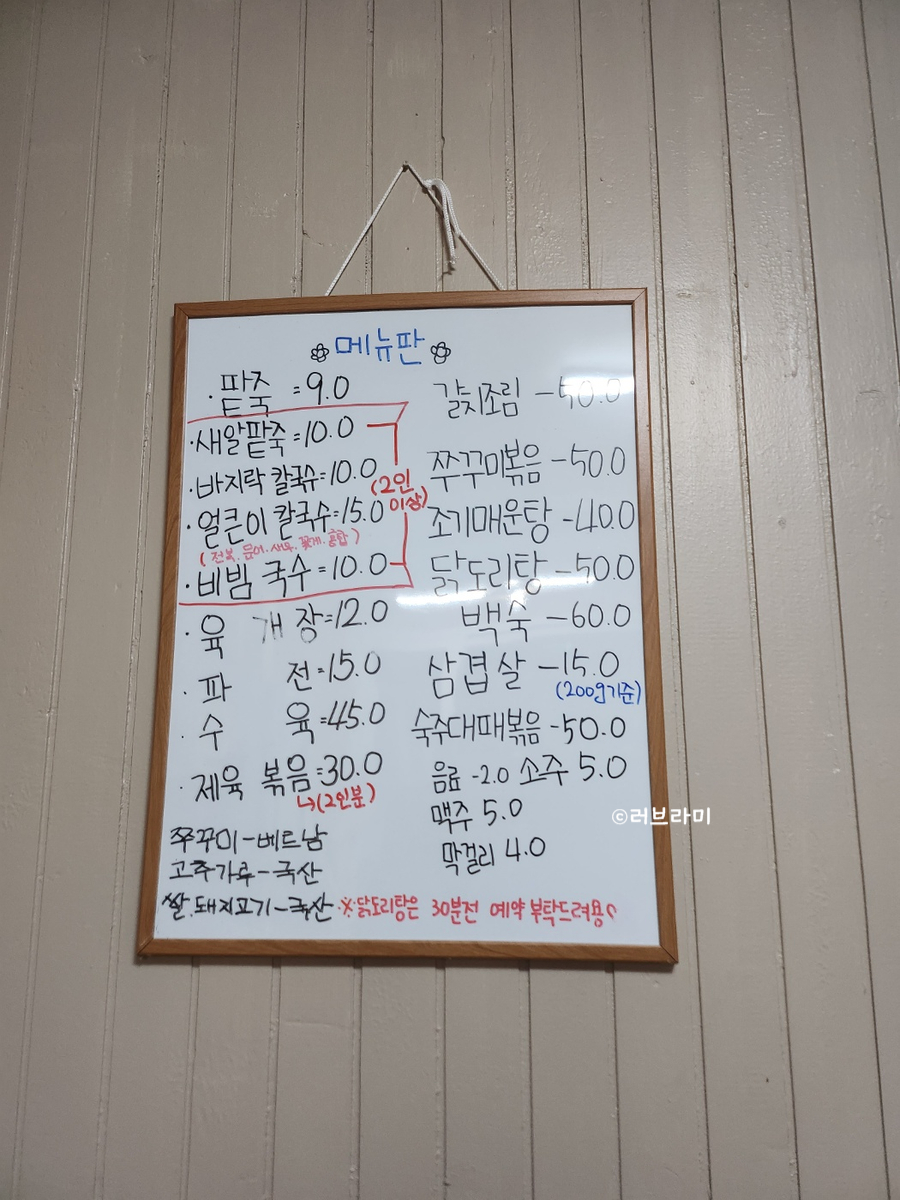 메뉴판
·팥죽 =9.0
·새알팥죽=10.0
·바지락 칼국수=10.0
(2인 이상)
·얼큰이 칼국수=15.0
(전복.문어.새우.꽃게.홍합)
·비빔 국수=10.0
·육개장=12.0
·파전=15.0
·수육=45.0
·제육 볶음=30.0
↳(2인분)
쭈꾸미-베트남
고추가루-국산
쌀.돼지고기-국산
갈치조림 -50.0
쭈꾸미볶음-50.0
조기매운탕-40.0
닭도리탕-50.0
백숙-60.0
삼겹살-15.0
(200g기준)
숙주대패볶음-50.0
음료-2.0 소주 5.0
맥주 5.0
막걸리 4.0
※닭도리탕은 30분전 예약 부탁드려용
©러브라미